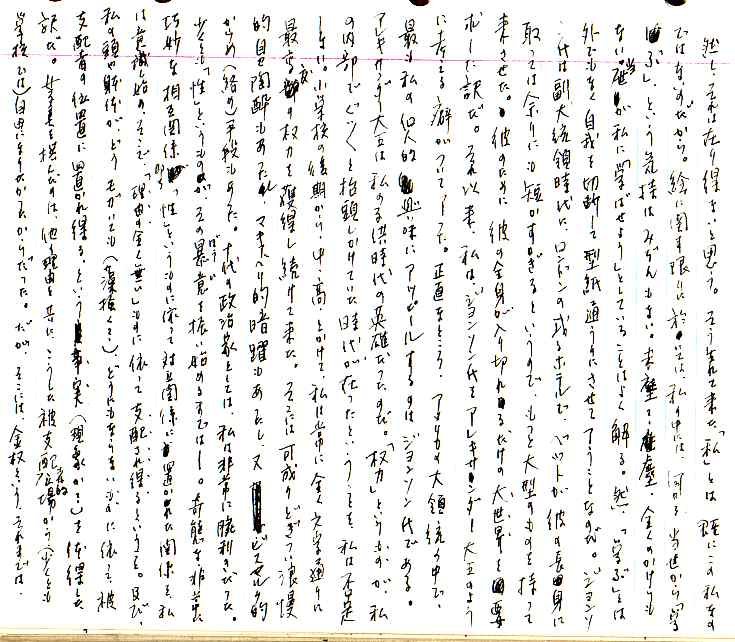 然し、それは在り得ないと思う。そう言って来た「私」とは 既にこの私なの
ではないのだから。絵に関する限りに於いては、私の中には、何かる当世から「学
ぶ」、という気持はみじんもない。
ない。当が私に「学ばせよう」としていることはよく解る。然し「学ぶ」とは
外でもなく自我を切断して型紙通りにさせてしまうことなのだ。ジョンソン
氏は副大統領時代に、ロンドンの或るホテルで、ベットが彼の長身に
取っては余りにも短かすぎるというので、もっと大型のものを持って
来させた。彼のために 彼の全身が入り切れるだけの大世界を要
求した訳だ。それ以来、私は、ジョンソン氏をアレキサンダー大王のよう
に考える癖がついてしまった。正直なところ、アメリカの大統領の中で、
最も私の個人的興味にアッピールするのはジョンソン氏である。
アレキサンダー大王は私の子供時代の英雄だったのだ。「権力」というものが、私
の内部でぐんぐんと抬頭しかけていた時代が在ったということを、私は否定
しない。小学校の後期から、中、高、とかけて、私は常に 全く文字通りに
最高度の権力を獲得し続けて来た。そこには可成りどぎつい浪漫
的自己陶酔もあったし、マキャベリ的暗躍もあったし、又ビスマルク的
からめ(絡め)手段もあった。十代の政治家としては、私は非常に腕利きだった。
少くとも「性」というものが、その暴意を振い始めるまでは――。奇態な非常に
巧妙な相互関係が「性」というものに依って対立関係に置かれた関係を、私
は意識し始め、そこで「理由の全く無い」ものに依って支配され得るということを、及び、
私の頭や身体が、どうもがいても(藻掻く?)、どうにもならないものに依って、被
支配者の位置に置かれ得る、という事実(現象か?)を体得した
訳だ。女子美を撰んだのは、他の理由と共に、こうした被支配者的立場から(少くとも
学校では)自由になりたかったからだった。だが、そこには、金权という、それまでは、